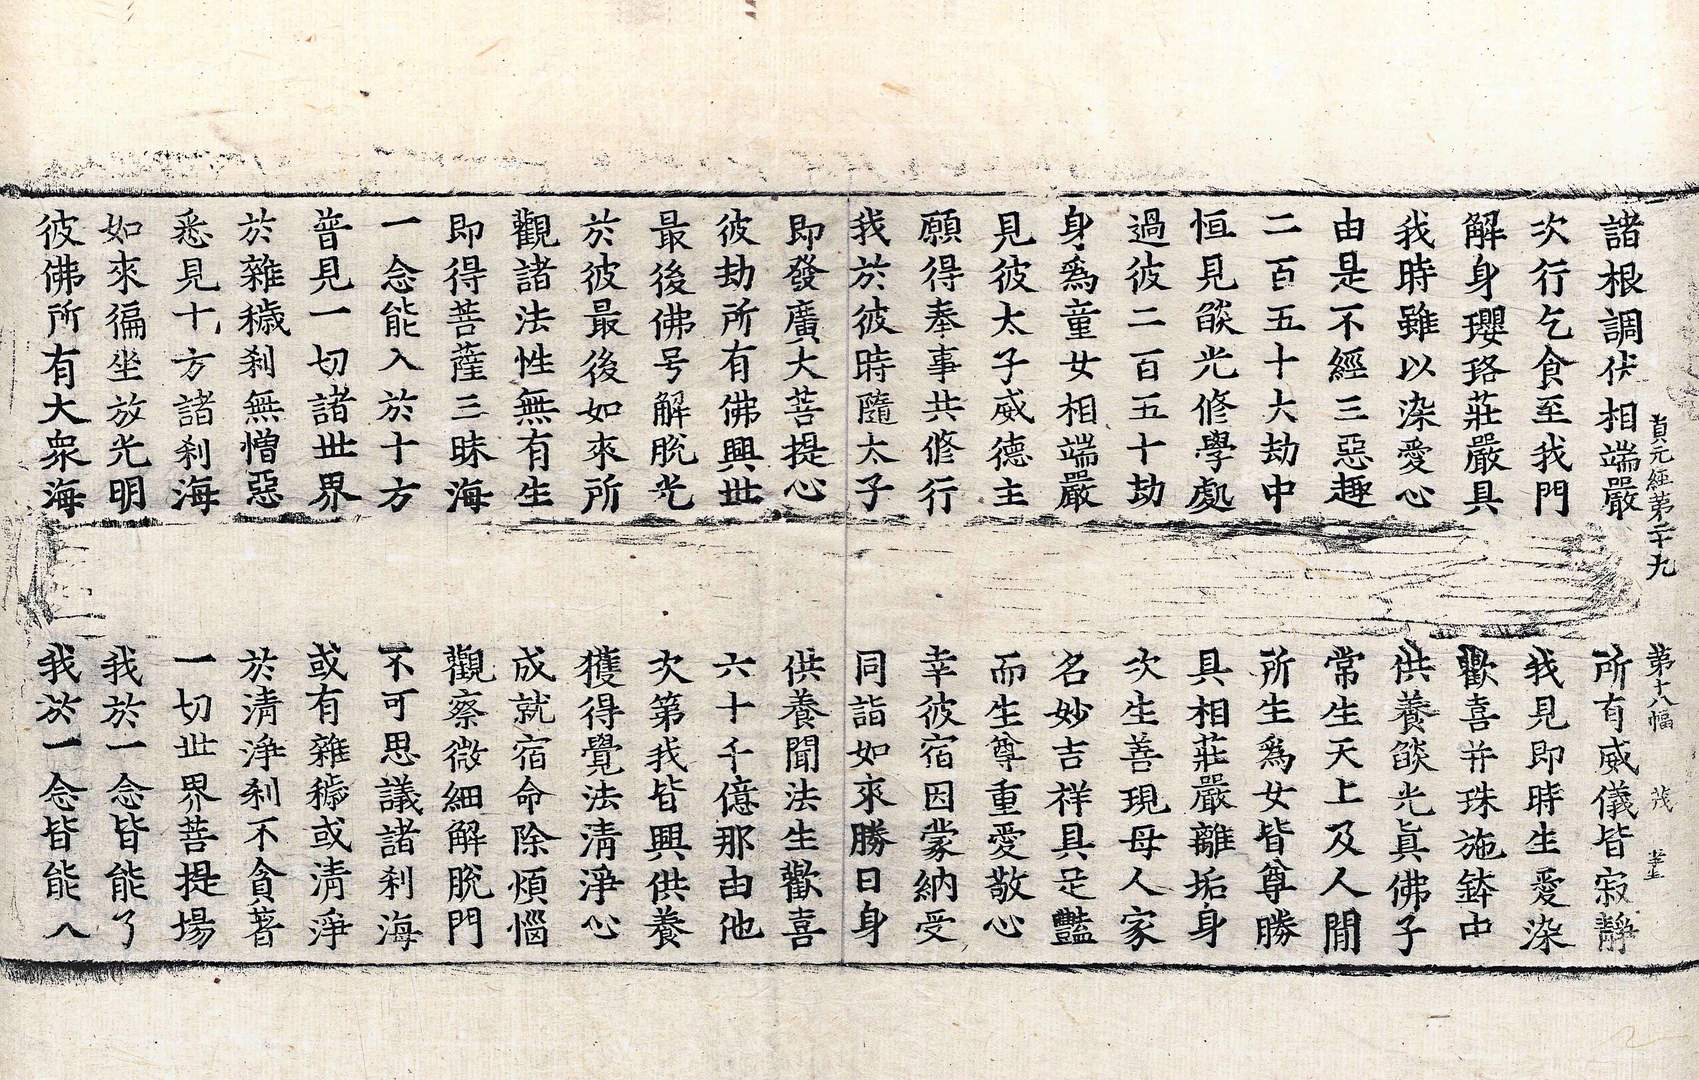 貞元經第二十九 第十八幅 茂
諸根調伏相端嚴 所有威儀皆寂靜
次行乞食至我門 我見即時生愛染
解身瓔珞莊嚴具 歡喜并珠施鉢中
我時雖以染愛心 供養燄光眞佛子
由是不經三惡趣 常生天上及人間
二百五十大劫中 所生爲女皆尊勝
恒見燄光修學處 具相莊嚴離垢身
過彼二百五十劫 次生善現母人家
身爲童女相端嚴 名妙吉祥具足豔
見彼太子威德主 而生尊重愛敬心
願得奉事共修行 幸彼宿因蒙納受
我於彼時隨太子 同詣如來勝日身
即發廣大菩提心 供養聞法生歡喜
彼劫所有佛興世 六十千億那由他
最後佛号解脫光 次第我皆興供養
於彼最後如來所 獲得覺法清淨心
觀諸法性無有生 成就宿命除煩惱
即得菩薩三昧海 觀察微細解脫門
一念能入於十方 不可思議諸刹海
普見一切諸世界 或有雜穢或清淨
於雜穢刹無憎惡 於清淨刹不貪著
悉見十方諸刹海 一切世界菩提場
如來徧坐放光明 我於一念皆能了
彼佛所有大衆海 我於一念皆能入